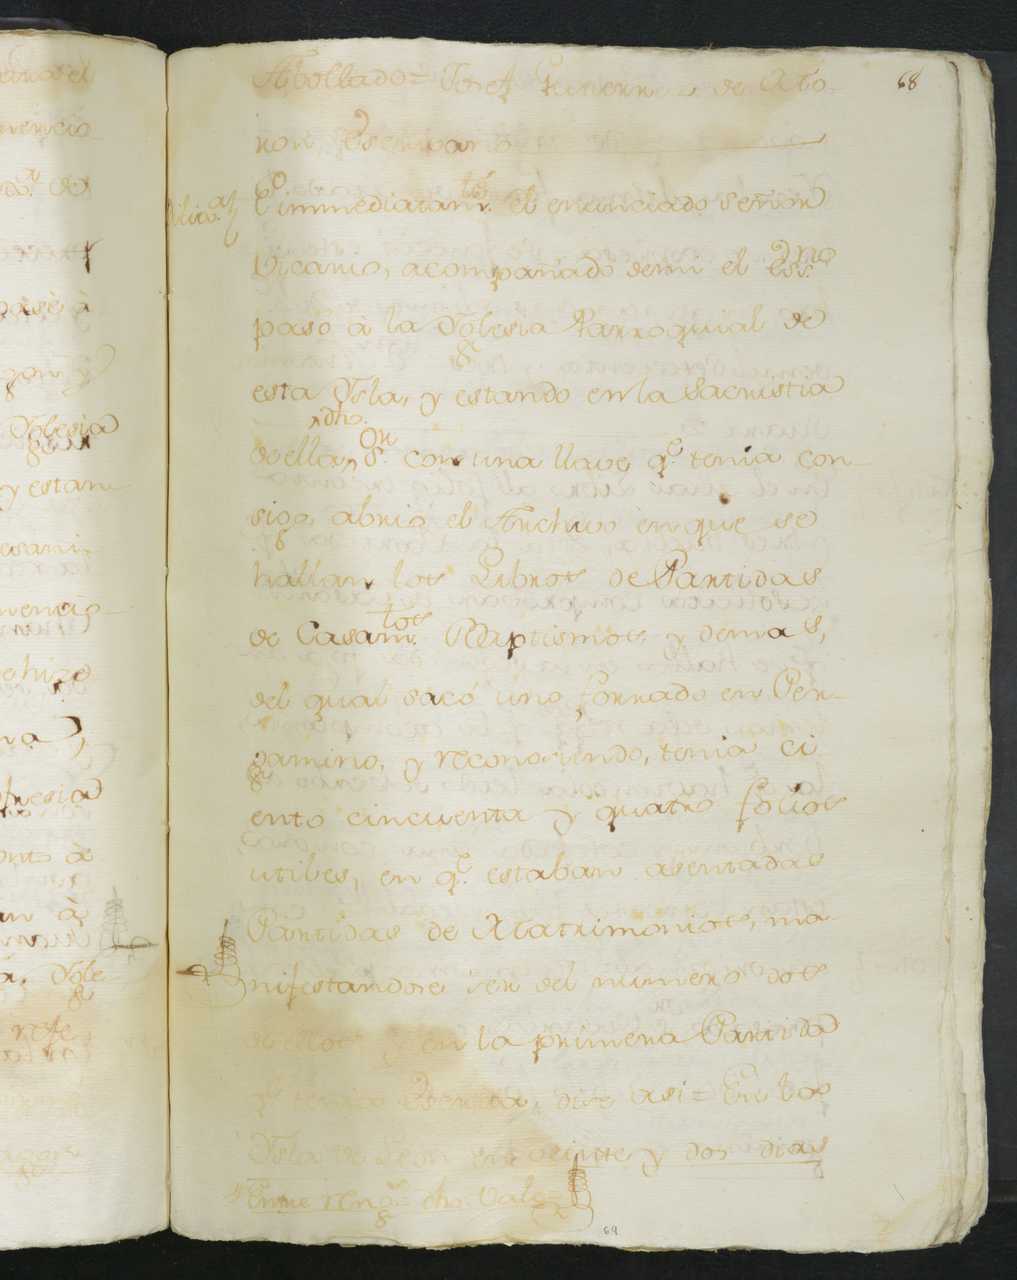 68
Abollado = Josef Gutierrez de Albo-
non Escrivano
Dilig.a
E inmediatam.te el enunciado Señor
Vicario, acompañado de mi el Ess.no
paso à la Yglesia Parroquial de
esta Ysla, y estando en la Sacristia
dho.
de ella, S.or con una llave q.e tenia con-
sigo abrio el Archivo en que se
hallan los Libros de Partidas
de Casam.tos Baptismos y demas,
del qual sacó uno forrado en Per-
gamino, y reconociendo, tenia ci-
ento cincuenta y quatro folios
utiles, en q.e estaban asentadas
Partidas de Matrimonios, ma-
nifestandose ser del numero dos
de ellos y en la primera Partida
q.e tenia Escrita, dice asi = En la
Ysla de Leon en veinte y dos dias
Entre reng.s dho. Vale
69